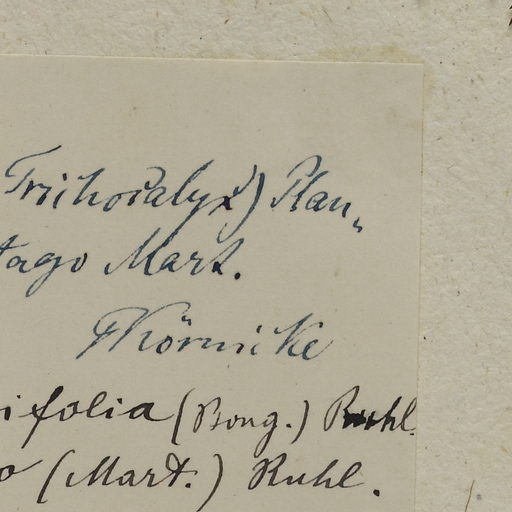 Trichocalyx) Plan„
tago Mart.
FKörnicke
ifolia (Bong.) Ruhl.
o (Mart.) Ruhl.